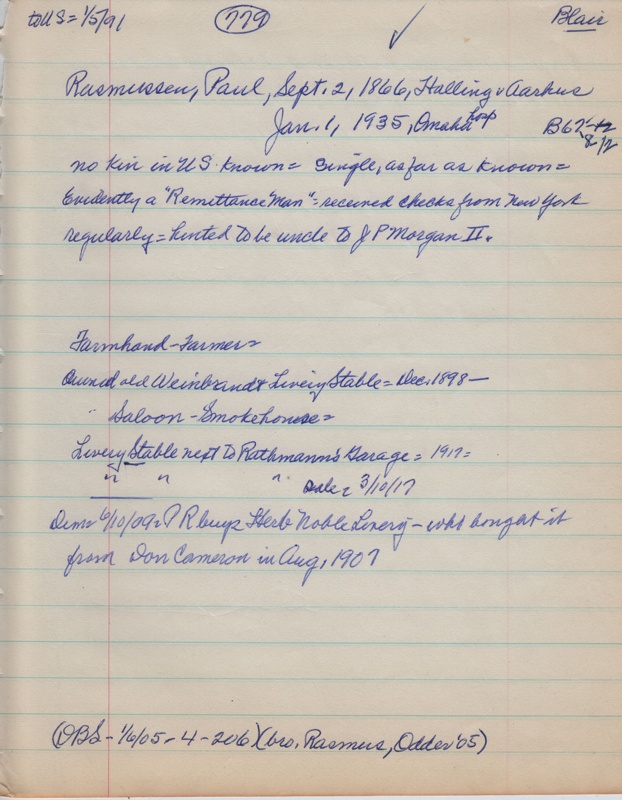 to US = 1/5/91 779 Blair
Rasmussen, Paul, Sept. 2, 1866, Halling v Aarhus
Jan. 1, 1935, Omaha hosp B62
8/2
no kin in US known = single, as far as known =
Evidently a "Remittance Man" = received checks from New York
regularly = hinted to be uncle to J P Morgan II.
Farmhand - Farmer =
Owned old Weinbrandt Livery Stable = Dec. 1898 —
" Saloon - Smokehouse =
Livery Stable next to Rathmann's Garage = 1917 =
" " " sale = 3/10/17
Dem = 6/10/09 = P R buys Herb Noble Livery - who bought it
from Don Cameron in Aug, 1907
(DBS - 1/6/05 - 4 - 206) (bro. Rasmus, Odder '05)